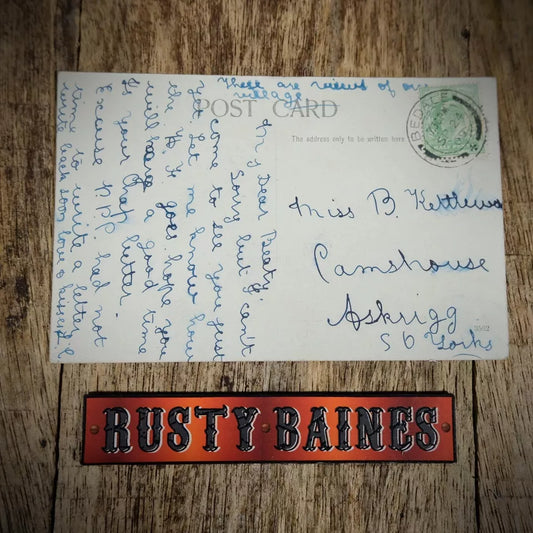 These are views of our
village
POST CARD
The address only to be written here
BEDALE
My Dear Beaty,
Sorry but I can't
come to see you just
yet. Let me know how
the W. F. goes hope you
will have a good time
to your
letter.
Excuse P.P.P. had not
time to write a letter
write back soon love & kisses
Miss B. Kettlewell
Camshouse
Askrigg
S O Yorks
RUSTY BAINES